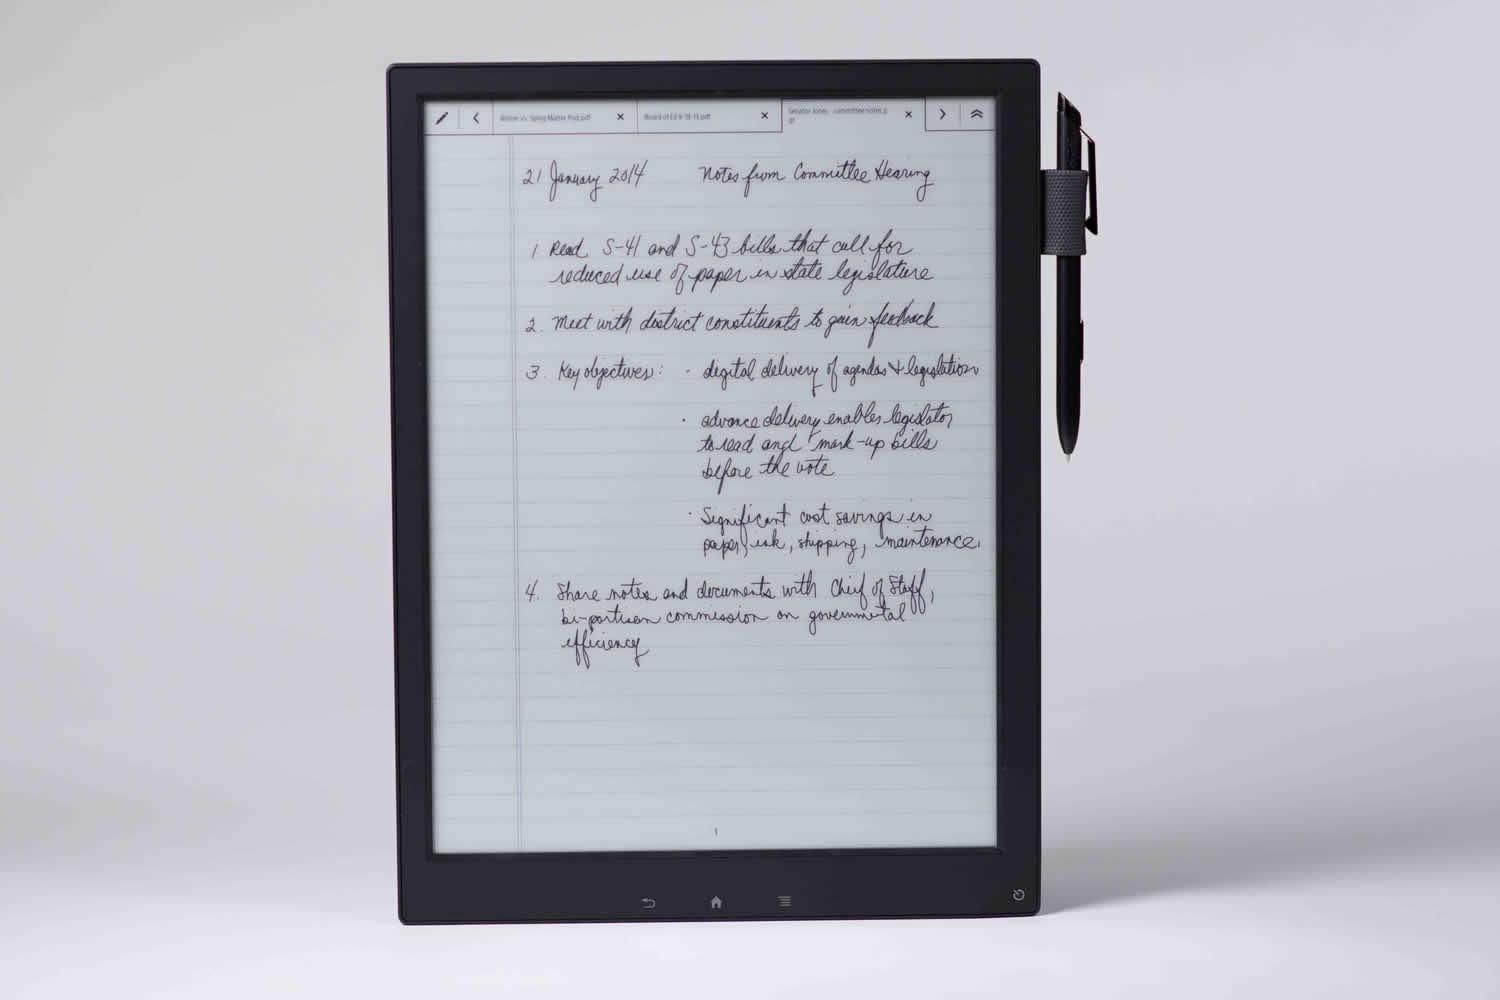 Board of Ed 9-19-13.pdf
Senator Jones, committee notes.p
df
21 January 2014 Notes from Committee Hearing
1 Read S-41 and S-43 bills that call for
reduced use of paper in state legislature
2. Meet with district constituents to gain feedback
3. Key objectives: · digital delivery of agendas & legislation
· advance delivery enables legislator
to read and mark-up bills
before the vote
· Significant cost savings in
paper, ink, shipping, maintenance.
4. Share notes and documents with Chief of Staff,
bi-partisan commission on governmental
efficiency
1